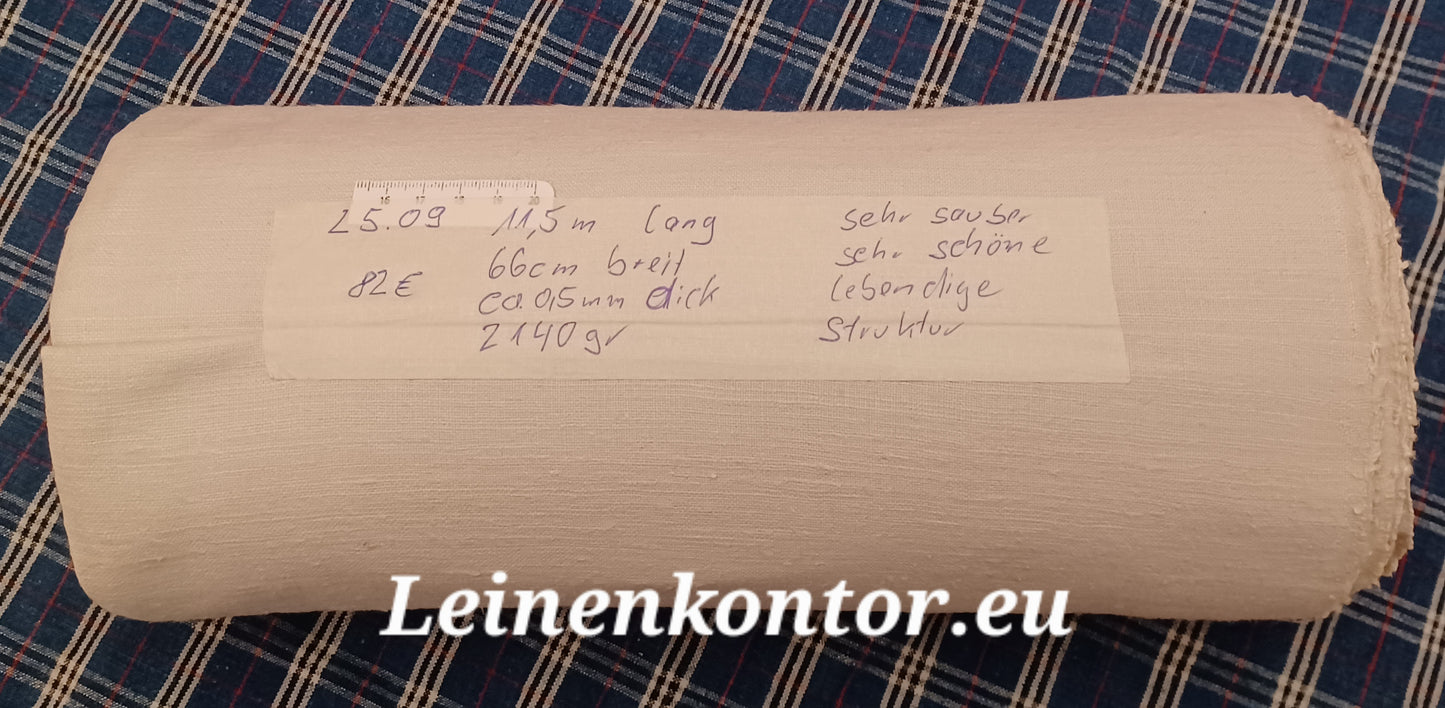 16 17 18 19 20
25.09 11,5m lang sehr sauber
66cm breit sehr schöne
82€ ca. 0,5mm dick lebendige
2140gr Struktur
Leinenkontor.eu